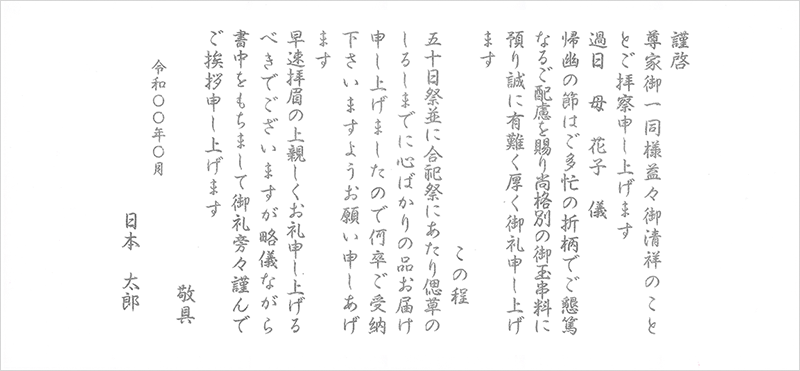 謹啓
尊家御一同様益々御清祥のこと
とご拝察申し上げます
過日　母　花子　儀
帰幽の節はご多忙の折柄でご懇篤
なるご配慮を賜り尚格別の御玉串料に
預り誠に有難く厚く御礼申し上げ
ます
この程
五十日祭並に合祀祭にあたり偲草の
しるしまでに心ばかりの品お届け
申し上げましたので何卒ご受納
下さいますようお願い申しあげ
ます
早速拝眉の上親しくお礼申し上げる
べきでございますが略儀ながら
書中をもちまして御礼旁々謹んで
ご挨拶申し上げます
敬具
令和〇〇年〇月
日本　太郎